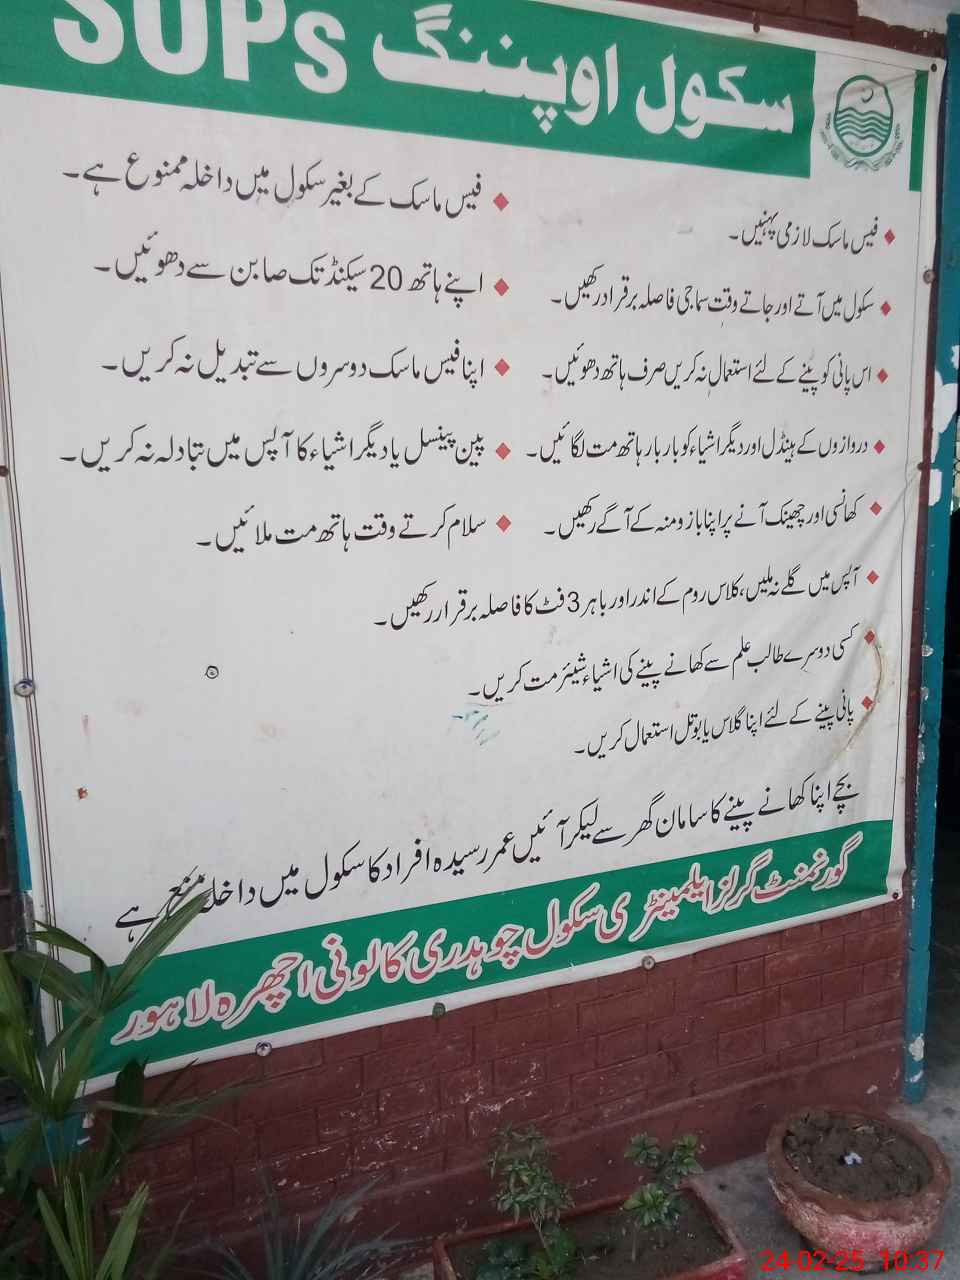 سکول اوپننگ SOPs
فیس ماسک لازمی پہنیں۔
سکول میں آتے اور جاتے وقت سماجی فاصلہ برقرار رکھیں۔
اس پانی کو پینے کے لئے استعمال نہ کریں صرف ہاتھ دھوئیں۔
دروازوں کے ہینڈل اور دیگر اشیاء کو بار بار ہاتھ مت لگائیں۔
کھانسی اور چھینک آنے پر اپنا بازو منہ کے آگے رکھیں۔
آپس میں گلے نہ ملیں، کلاس روم کے اندر اور باہر 3 فٹ کا فاصلہ برقرار رکھیں۔
کسی دوسرے طالب علم سے کھانے پینے کی اشیاء شیئر مت کریں۔
پانی پینے کے لئے اپنا گلاس یا بوتل استعمال کریں۔
فیس ماسک کے بغیر سکول میں داخلہ ممنوع ہے۔
اپنے ہاتھ 20 سیکنڈ تک صابن سے دھوئیں۔
اپنا فیس ماسک دوسروں سے تبدیل نہ کریں۔
پین پینسل یا دیگر اشیاء کا آپس میں تبادلہ نہ کریں۔
سلام کرتے وقت ہاتھ مت ملائیں۔
بچے اپنا کھانے پینے کا سامان گھر سے لیکر آئیں عمر رسیدہ افراد کا سکول میں داخلہ منع ہے
گورنمنٹ گرلز ایلیمینٹری سکول چوہدری کالونی اچھرہ لاہور
24-02-25 10:37